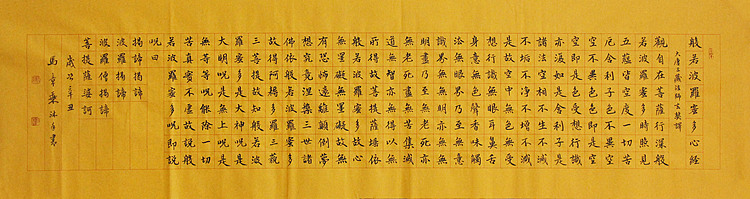 般若波羅蜜多心經
大唐三藏法師玄奘譯
觀自在菩薩行深般
若波羅蜜多時照見
五蘊皆空度一切苦
厄舍利子色不異空
空不異色色即是空
空即是色受想行識
亦復如是舍利子是
諸法空相不生不滅
不垢不淨不增不減
是故空中無色無受
想行識無眼耳鼻舌
身意無色聲香味觸
法無眼界乃至無意
識界無無明亦無無
明盡乃至無老死亦
無老死盡無苦集滅
道無智亦無得以無
所得故菩提薩埵依
般若波羅蜜多故心
無罣礙無罣礙故無
有恐怖遠離顛倒夢
想究竟涅槃三世諸
佛依般若波羅蜜多
故得阿耨多羅三藐
三菩提故知般若波
羅蜜多是大神呪是
大明呪是無上呪是
無等等呪能除一切
苦真實不虛故說般
若波羅蜜多呪即說
呪曰
揭諦揭諦
波羅揭諦
波羅僧揭諦
菩提薩婆訶
歲次辛丑
馬章乘沐手書